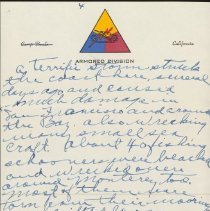 4
Camp Cooke
California
ARMORED DIVISION
A terrific storm struck
the coast here several
days ago and caused
much damage in
San Francisco and around
the Bay, also wrecking
many small sea
craft. About 40 fishing
schooners were beached
and wrecked on
around Monterey, too.
most of them were
torn from their moorings